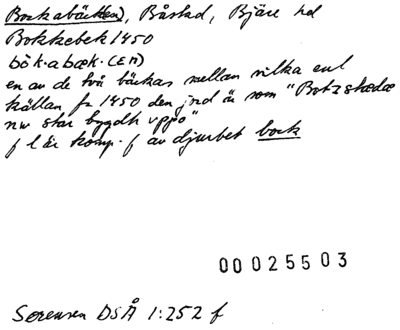 Bockabäcken), Båstad, Bjäre hd
Bokkebek 1450
bòk.abæk.(EN)
en av de två bäckar mellan vilka enl
källan fr 1450 den jord är som "Botzstædæ
nw star bygdh vppo"
f l är komp. f av djurbet bock
00025503
Sørensen DSÅ 1:252 f